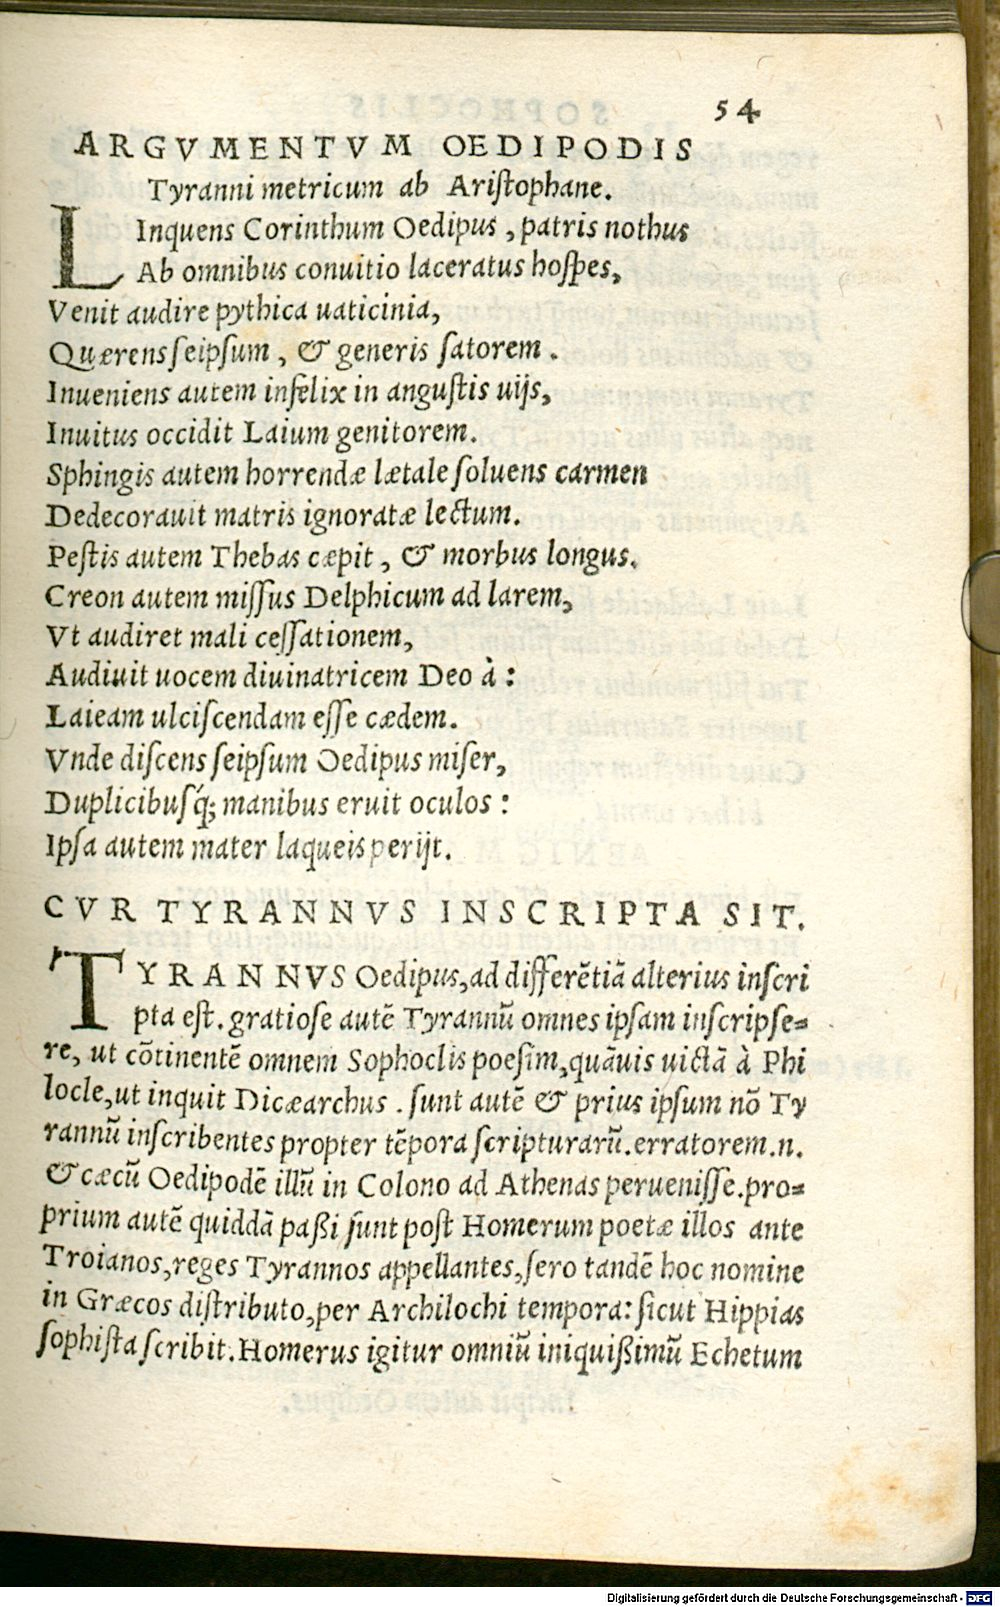 54
ARGVMENTVM OEDIPODIS
Tyranni metricum ab Ariſtophane.
LInquens Corinthum Oedipus, patris nothus
Ab omnibus conuitio laceratus hoſpes,
Venit audire pythica uaticinia,
Quærens ſeipſum, & generis ſatorem.
Inueniens autem infelix in anguſtis uijs,
Inuitus occidit Laium genitorem.
Sphingis autem horrendæ lætale ſoluens carmen
Dedecorauit matris ignoratæ lectum.
Peſtis autem Thebas cæpit, & morbus longus.
Creon autem miſſus Delphicum ad larem,
Vt audiret mali ceſſationem,
Audiuit uocem diuinatricem Deo à:
Laieam ulciſcendam eſſe cædem.
Vnde diſcens ſeipſum Oedipus miſer,
Duplicibuſq́; manibus eruit oculos:
Ipſa autem mater laqueis perijt.
CVR TYRANNVS INSCRIPTA SIT.
TYRANNVS Oedipus, ad differētiā alterius inſcri
pta eſt. gratioſe autē Tyrannū omnes ipſam inſcripſe=
re, ut cōtinentē omnem Sophoclis poeſim, quāuis uictā à Phi
locle, ut inquit Dicæarchus. ſunt autē & prius ipſum nō Ty
rannū inſcribentes propter tēpora ſcripturarū. erratorem .n.
& cæcū Oedipodē illū in Colono ad Athenas perueniſſe. pro=
prium autē quiddā paßi ſunt poſt Homerum poetæ illos ante
Troianos, reges Tyrannos appellantes, ſero tandē hoc nomine
in Græcos diſtributo, per Archilochi tempora: ſicut Hippias
ſophiſta ſcribit. Homerus igitur omniū iniquißimū Echetum
Digitalisierung gefördert durch die Deutsche Forschungsgemeinschaft - DFG